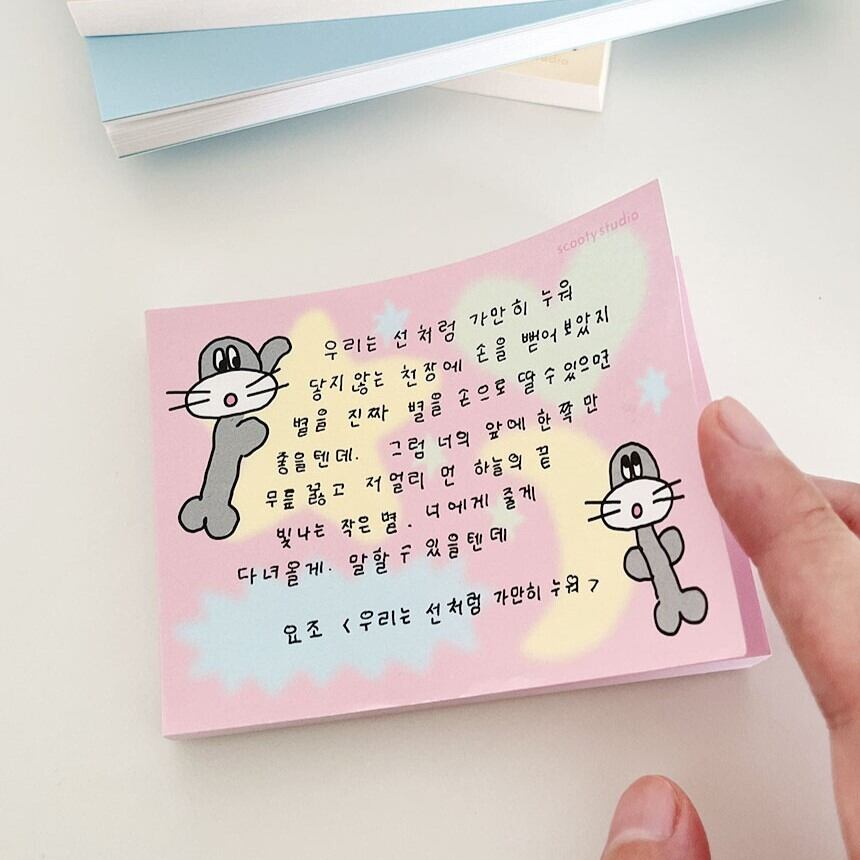 scootystudio
우리는 선처럼 가만히 누워
닿지않는 천장에 손을 뻗어보았지
별을 진짜 별을 손으로 딸 수 있으면
좋을텐데. 그럼 너의 앞에 한쪽만
무릎 꿇고 저 멀리 먼 하늘의 끝
빛나는 작은 별. 너에게 줄게
다녀올게. 말할 수 있을텐데
요조 <우리는 선처럼 가만히 누워>